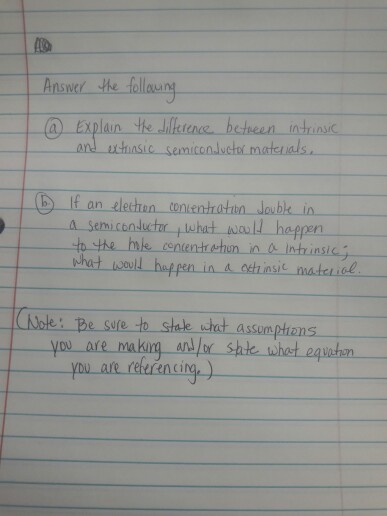 Answer the following
(a) Explain the difference between intrinsic
and extrinsic semiconductor materials.
(b) If an electron concentration double in
a semiconductor, what would happen
to the hole concentration in a intrinsic;
what would happen in a extrinsic material.
(Note: Be sure to state what assumptions
you are making and/or state what equation
you are referencing.)